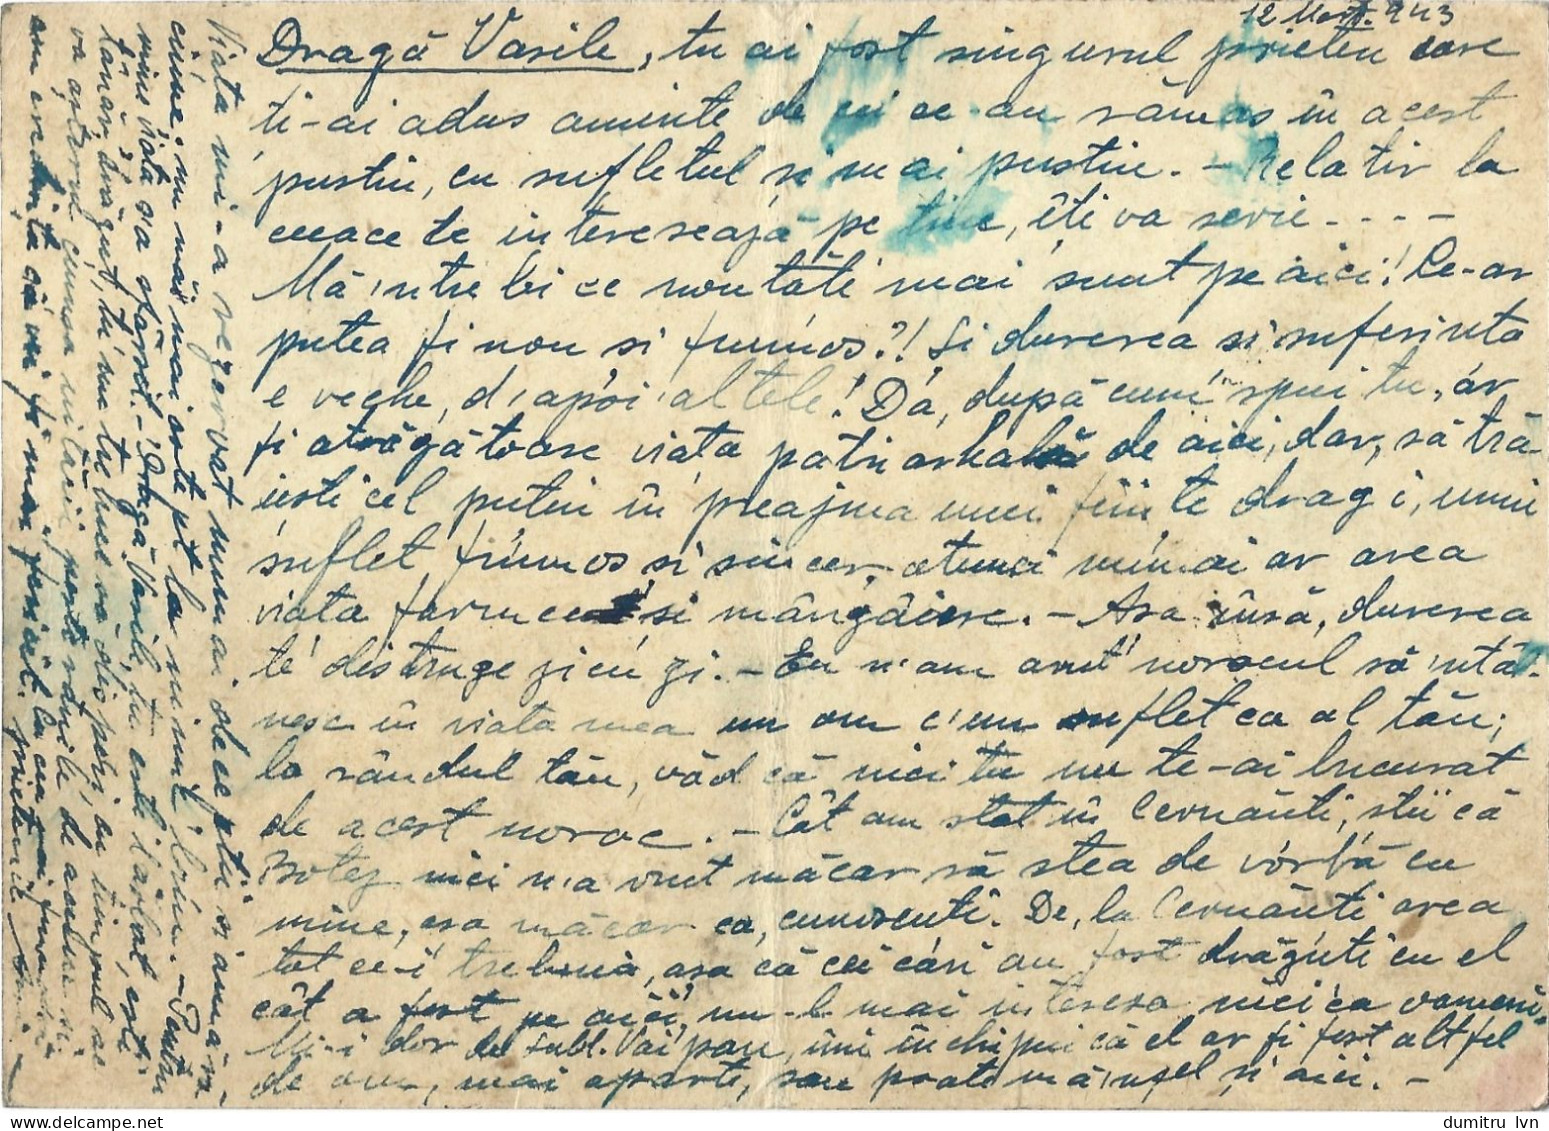 12 Mart. 943
Dragă Vasile, tu ai fost singurul prieten care
ti-ai adus aminte de cei ce au rămas în acest
pustiu, cu sufletul si mai pustiu. - Relativ la
ceeace te interesează pe tine, îti va scrie - - - -
Mă 'ntrebi ce noutăti mai sunt pe aici! Ce-ar
putea fi nou si frumos?! Si durerea si suferinta
e veche, d'apoi altele! Da, după cum spui tu, ar
fi atrăgătoare viata patriarhală de aici, dar, să tră-
iesti cel putin în preajma unei fiinte dragi, unui
suflet frumos si sincer, atunci numai ar avea
viata farmec si mângâiere. - Asa însă, durerea
te distruge zi cu zi. - Eu n'am avut norocul să 'ntâl-
nesc în viata mea un om c'un suflet ca al tău;
la rândul tău, văd că nici tu nu te-ai bucurat
de acest noroc. - Cât am stat în Cernăuti, stii că
Botez nici n'a vrut măcar să stea de vorbă cu
mine, asa măcar ca cunoscuti. De, la Cernăuti avea
tot ce-i trebuia, asa că cei cari au fost drăguti cu el
cât a fost pe aici, nu-l mai interesa, nici ca oameni.
Mi-i dor de Subl. Vai pau, îmi închipui că el ar fi fost altfel
de om, mai aparte, sau poate m'ănsel si aici. -
Viata mi-a rezervat numai deceptii si amăra-
ciune; nu mă mai astept la nimic bun. - Pentru
mine viata s'a sfârsit. - Dragă Vasile, tu este băiat, esti
tânăr, drăgut, tu nu trebue să disperi, cu timpul se
va asterne cununa uitării peste rănile de acolse si
am credinta că vei fi mai fericit. Cu aceeasi
prietenie